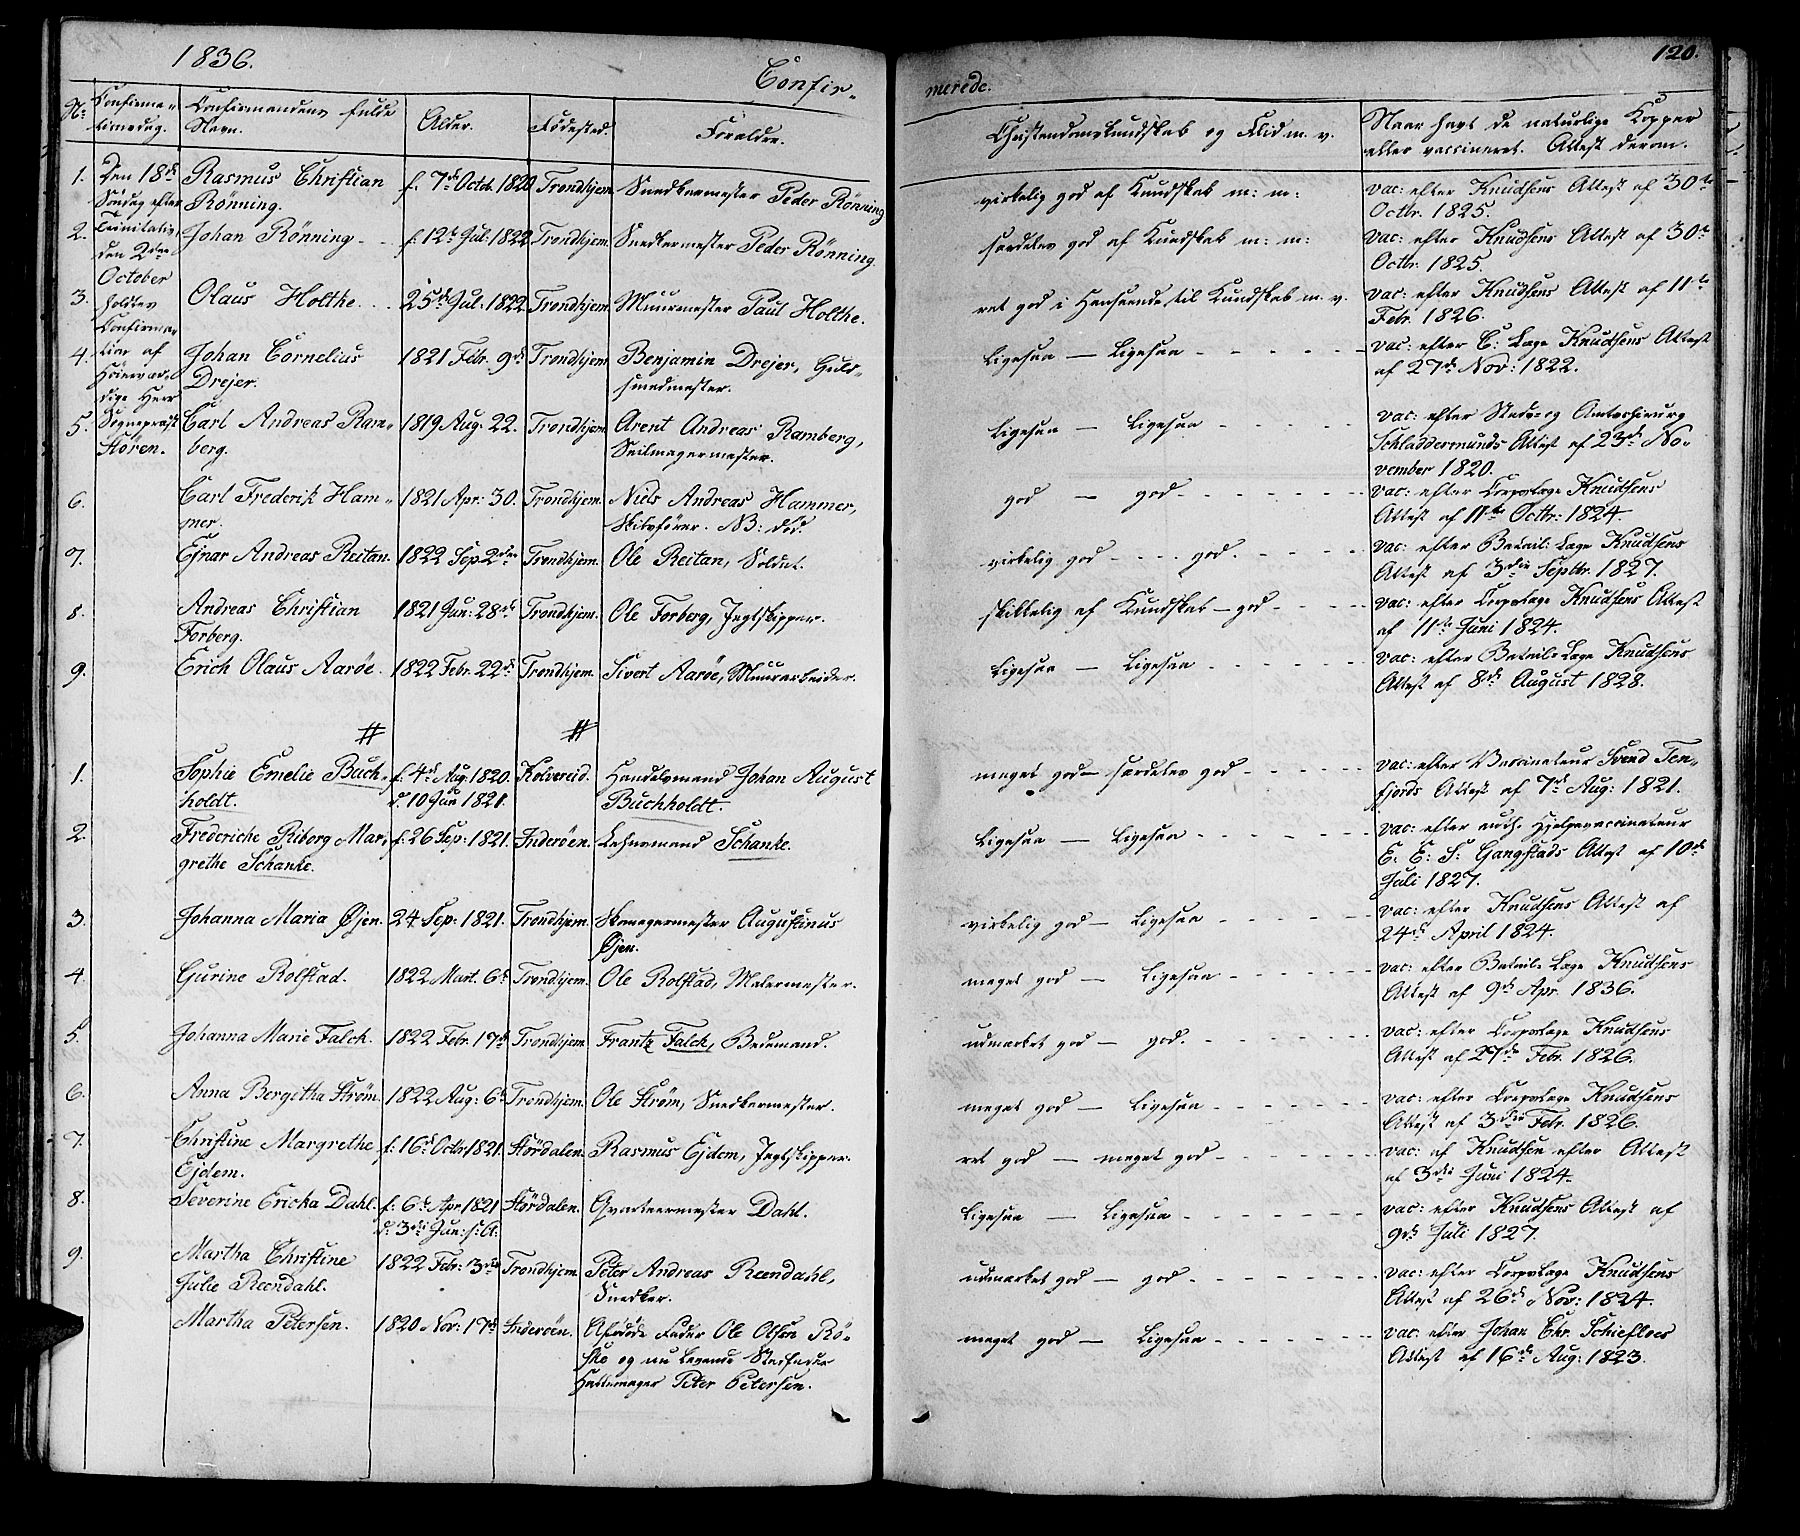 1836.
Confir-
merede.
120.
No
Confirma-
tionsdag.
Confirmandens fulde
Navn.
Alder.
Fødested.
Forældre.
Christendomskundskab og Flid m. v.
Naar havt de naturlige Kopper
eller vaccineret. Attest derom.
Den 18de
Søndag efter
Trinitatis,
den 2den
October
holdtes
Confirma-
tion af
Høiærvær-
dige Herr
Sognepræst
Støren.
1. Rasmus Christian f. 7de Octob. 1820 Trondhjem Snedkermester Peder Rönning virkelig god af Kundskab m: m: vac: efter Knudtsens Attest af 30te
Rönning. Octbr. 1825.
2. Johan Rönning - - f. 12te Jul: 1822 Trondhjem. Snedkermester Peder Rönning. særdeles god af Kundskab m: m: vac: efter Knudtsens Attest af 30te
Octbr: 1825.
3. Olaus Holthe. - - 25de Jul: 1822 Trondhjem Muurmester Paul Holthe. ret god i Henseende til Kundskab m. v. vac: efter Knudtsens Attest af 11te
Febr. 1826.
4. Johan Cornelius 1821 Febr. 9de Trondhjem Benjamin Drejer, Guld- Ligesaa — Ligesaa - - - - - - vac: efter C: Læge Knudtsens Attest
Drejer. smedmester. af 27de Nov: 1822.
5. Carl Andreas Ram- 1819 Aug: 22. Trondhjem Arent Andreas Ramberg, Ligesaa — Ligesaa - - - - - vac: efter Stads- og Amtschirurg
berg. Seilmagermester. Schladdermunds Attest af 23de No-
vember 1820.
6. Carl Frederik Ham- 1821 Apr: 30. Trondhjem. Niels Andreas Hammer, god — god - - - - - - vac: efter Corpslæge Knudtsens
mer. Skibsfører. NB: død. Attest af 11te Octbr: 1824.
7. Ejnar Andreas Reitan. 1822 Sep. 2den Trondhjem. Ole Reitan, Soldat. virkelig god - - - god. - - - - vac: efter Batail: Læge Knudtsens
Attest af 3die Septbr. 1827.
8. Andreas Christian 1821 Jun: 28de Trondhjem. Ole Forberg, Jegtskipper. skikkelig af Kundskab — god - - - - vac: efter Corpslæge Knudtsens Attest
Forberg. af 11te Juni 1824.
9. Erich Olaus Aaröe. 1822 Febr. 22de Trondhjem. Sivert Aaröe, Muurarbeider. Ligesaa — Ligesaa - - - - - - vac: efter Batail: Læge Knudtsens
Attest af 8de August 1828.
# #
1. Sophie Emelie Buch- f. 4de Aug: 1820. Kolvereid. Handelsmand Johan August meget god — særdeles god - - - - - vac: efter Vaccinateur Svend Ten-
holdt. d. 10 Jun 1821. Buchholdt. fjords Attest af 7de Aug: 1821.
2. Frederiche Riborg Mar- f. 26 Sep: 1821. Inderöen. Lehnsmand Schanke. Ligesaa — Ligesaa - - - - - - vac: efter auth. Hjelpevaccinateur
grethe Schanke. E. E: S: Gangstads Attest af 10de
Juli 1827.
3. Johanna Maria Øjen. 24 Sep: 1821. Trondhjem. Skomagermester Augustinus virkelig god — Ligesaa - - - - - vac: efter Knudtsens Attest af
Øjen. 24de April 1824.
4. Gurine Rolfstad. 1822 Mart. 6te Trondhjem. Ole Rolfstad, Malermester. meget god — Ligesaa - - - - - vac: efter Batail: Læge Knudtsens
Attest af 9de Apr. 1836.
5. Johanna Marie Falch. 1822 Febr. 17de Trondhjem Frantz Falch, Bedemand. udmærket god — god. - - - - - - vac: efter Corpslæge Knudtsens
Attest af 27de Febr. 1826.
6. Anna Bergitha Ström. 1822 Aug: 6te Trondhjem. Ole Ström, Snedkermester. meget god — Ligesaa - - - - - - vac: efter Corpslæge Knudtsens
Attest af 3die Febr. 1826.
7. Christine Margrethe f. 16de Octbr 1821. Stördalen. Rasmus Ejdem, Jegtskipper. ret god — meget god - - - - - - vac: af Knudtsen efter Attest
Ejdem. af 3die Juni 1824.
8. Severine Ericka Dahl. f. 6te Apr 1821 Stördalen. Qvarteermester Dahl. Ligesaa — Ligesaa - - - - - - vac: efter Knudtsens Attest af
d: 3die Jun: s: A. 9de Juli 1827.
9. Martha Christine 1822 Febr: 3die Trondhjem. Peter Andreas Reendahl, udmærket god — god - - - - - - vac: efter Corpslæge Knudtsens
Julie Reendahl. Snedker. Attest af 26de Nov: 1824.
Martha Petersen. 1820 Nov: 17de Inderöen. Afdøde Fader Ole Olsen Rö- meget god — Ligesaa - - - - - - vac: efter Johan Chr. Schiefloes
ske og nu levende Stedfader Attest af 16de Aug: 1823.
Hattemager Peter Petersen.